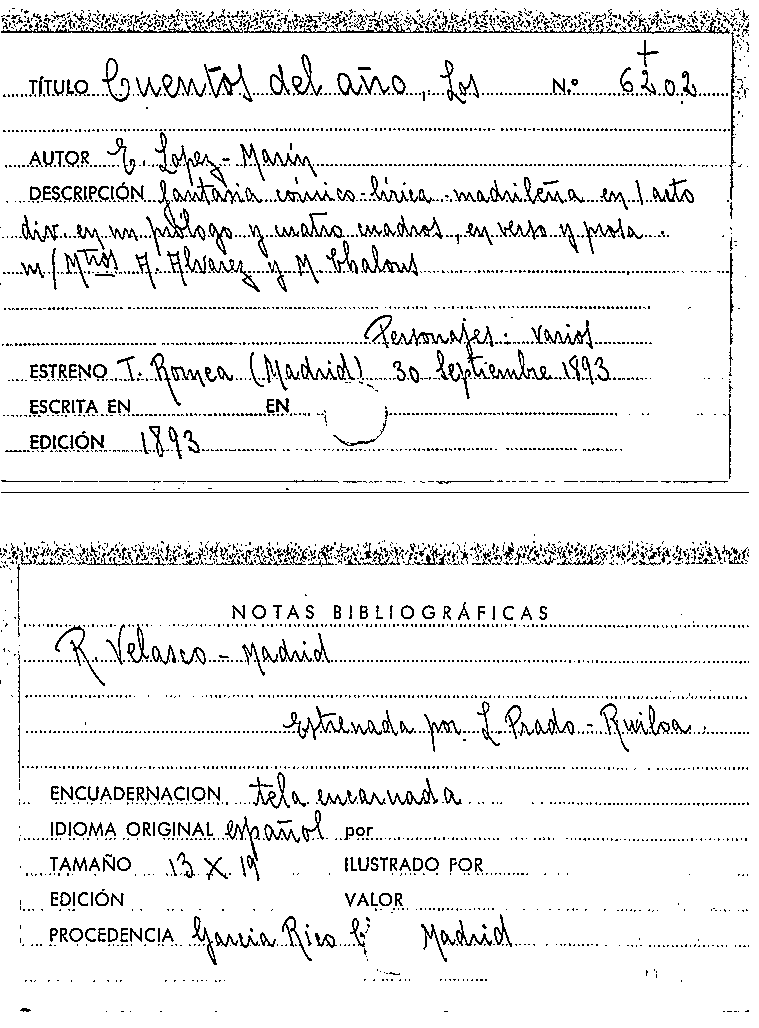 TÍTULO Cuentos del año, Los N.º 6202
AUTOR E. Lopez-Marín
DESCRIPCIÓN fantasia cómico-lírica-madrileña en 1 acto
div. en un prólogo y cuatro cuadros, en verso y prosa.
m/Mtros A. Alvarez y M. Chalons
Personajes: varios
ESTRENO T. Romea (Madrid) 30 Septiembre 1893
ESCRITA EN EN
EDICIÓN 1893
NOTAS BIBLIOGRÁFICAS
R. Velasco - Madrid
Estrenada por L. Prado - Ruiloa.
ENCUADERNACION tela encarnada
IDIOMA ORIGINAL español por
TAMAÑO 13 X 19 ILUSTRADO POR
EDICIÓN VALOR
PROCEDENCIA Garcia Rico Cª Madrid